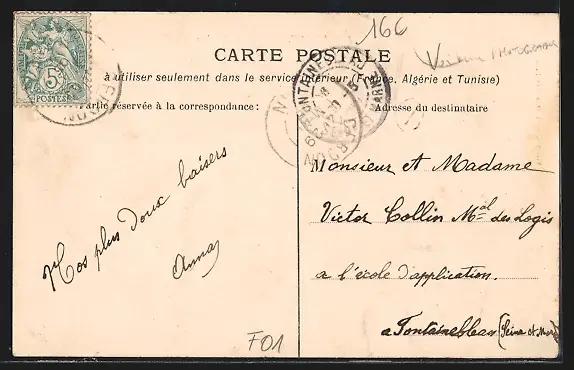 16C
CARTE POSTALE
à utiliser seulement dans le service intérieur (France, Algérie et Tunisie)
Partie réservée à la correspondance :
Adresse du destinataire
5c
POSTES
Monsieur et Madame
Victor Collin Mal des Logis
a l'école d'application.
a Fontainebleau (Seine et Marne)
Nos plus doux baisers
Anna
F01